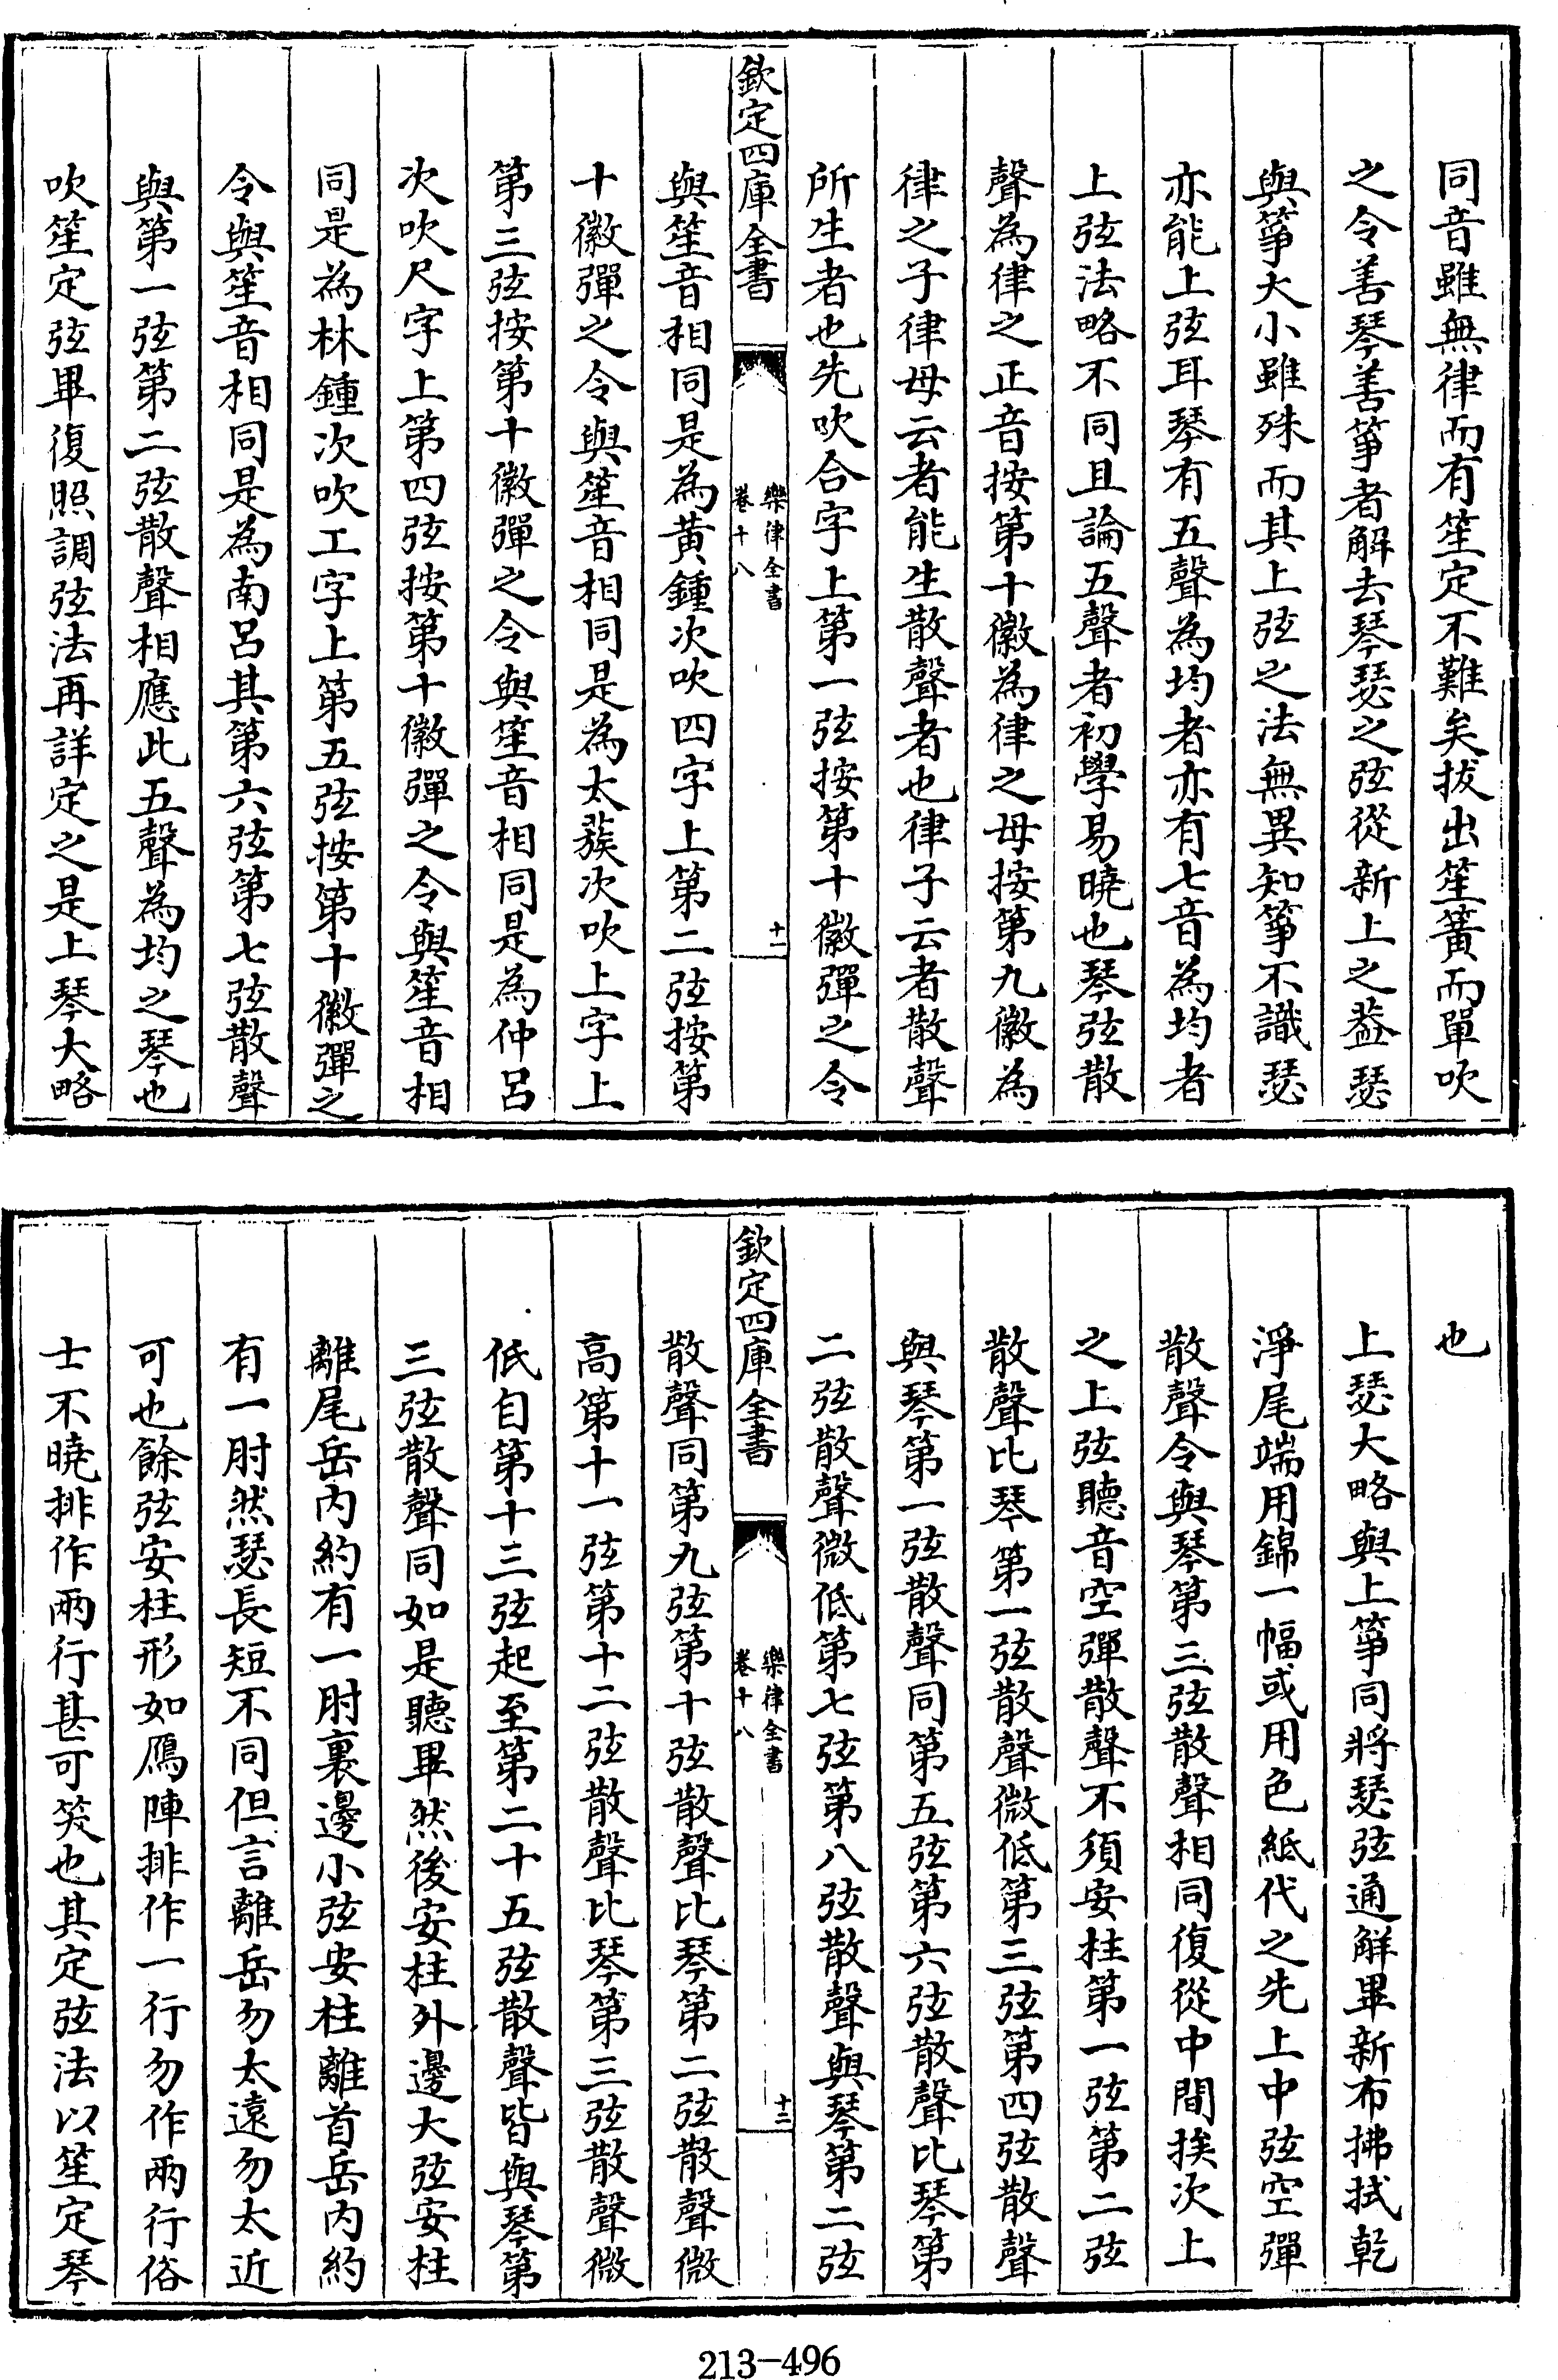 同音雖無律而有笙定不難矣拔出笙簧而單吹
之令善琴善箏者解去琴瑟之弦從新上之葢瑟
與箏大小雖殊而其上弦之法無異知箏不識瑟
亦能上弦耳琴有五聲為均者亦有七音為均者
上弦法略不同且論五聲者初學易曉也琴弦散
聲為律之正音按第十徽為律之母按第九徽為
律之子律母云者能生散聲者也律子云者散聲
所生者也先吹合字上第一弦按第十徽彈之令
欽定四庫全書
樂律全書
卷十八
十一
與笙音相同是為黃鍾次吹四字上第二弦按第
十徽彈之令與笙音相同是為太蔟次吹上字上
第三弦按第十徽彈之令與笙音相同是為仲呂
次吹尺字上第四弦按第十徽彈之令與笙音相
同是為林鍾次吹工字上第五弦按第十徽彈之
令與笙音相同是為南呂其第六弦第七弦散聲
與第一弦第二弦散聲相應此五聲為均之琴也
吹笙定弦畢復照調弦法再詳定之是上琴大略
也
上瑟大略與上箏同將瑟弦通解畢新布拂拭乾
淨尾端用錦一幅或用色紙代之先上中弦空彈
散聲令與琴第三弦散聲相同復從中間挨次上
之上弦聽音空彈散聲不須安柱第一弦第二弦
散聲比琴第一弦散聲微低第三弦第四弦散聲
與琴第一弦散聲同第五弦第六弦散聲比琴第
二弦散聲微低第七弦第八弦散聲與琴第二弦
欽定四庫全書
樂律全書
卷十八
十二
散聲同第九弦第十弦散聲比琴第二弦散聲微
高第十一弦第十二弦散聲比琴第三弦散聲微
低自第十三弦起至第二十五弦散聲皆與琴第
三弦散聲同如是聽畢然後安柱外邊大弦安柱
離尾岳內約有一肘裏邊小弦安柱離首岳內約
有一肘然瑟長短不同但言離岳勿太遠勿太近
可也餘弦安柱形如鴈陣排作一行勿作兩行俗
士不曉排作兩行甚可笑也其定弦法以笙定琴
213-496